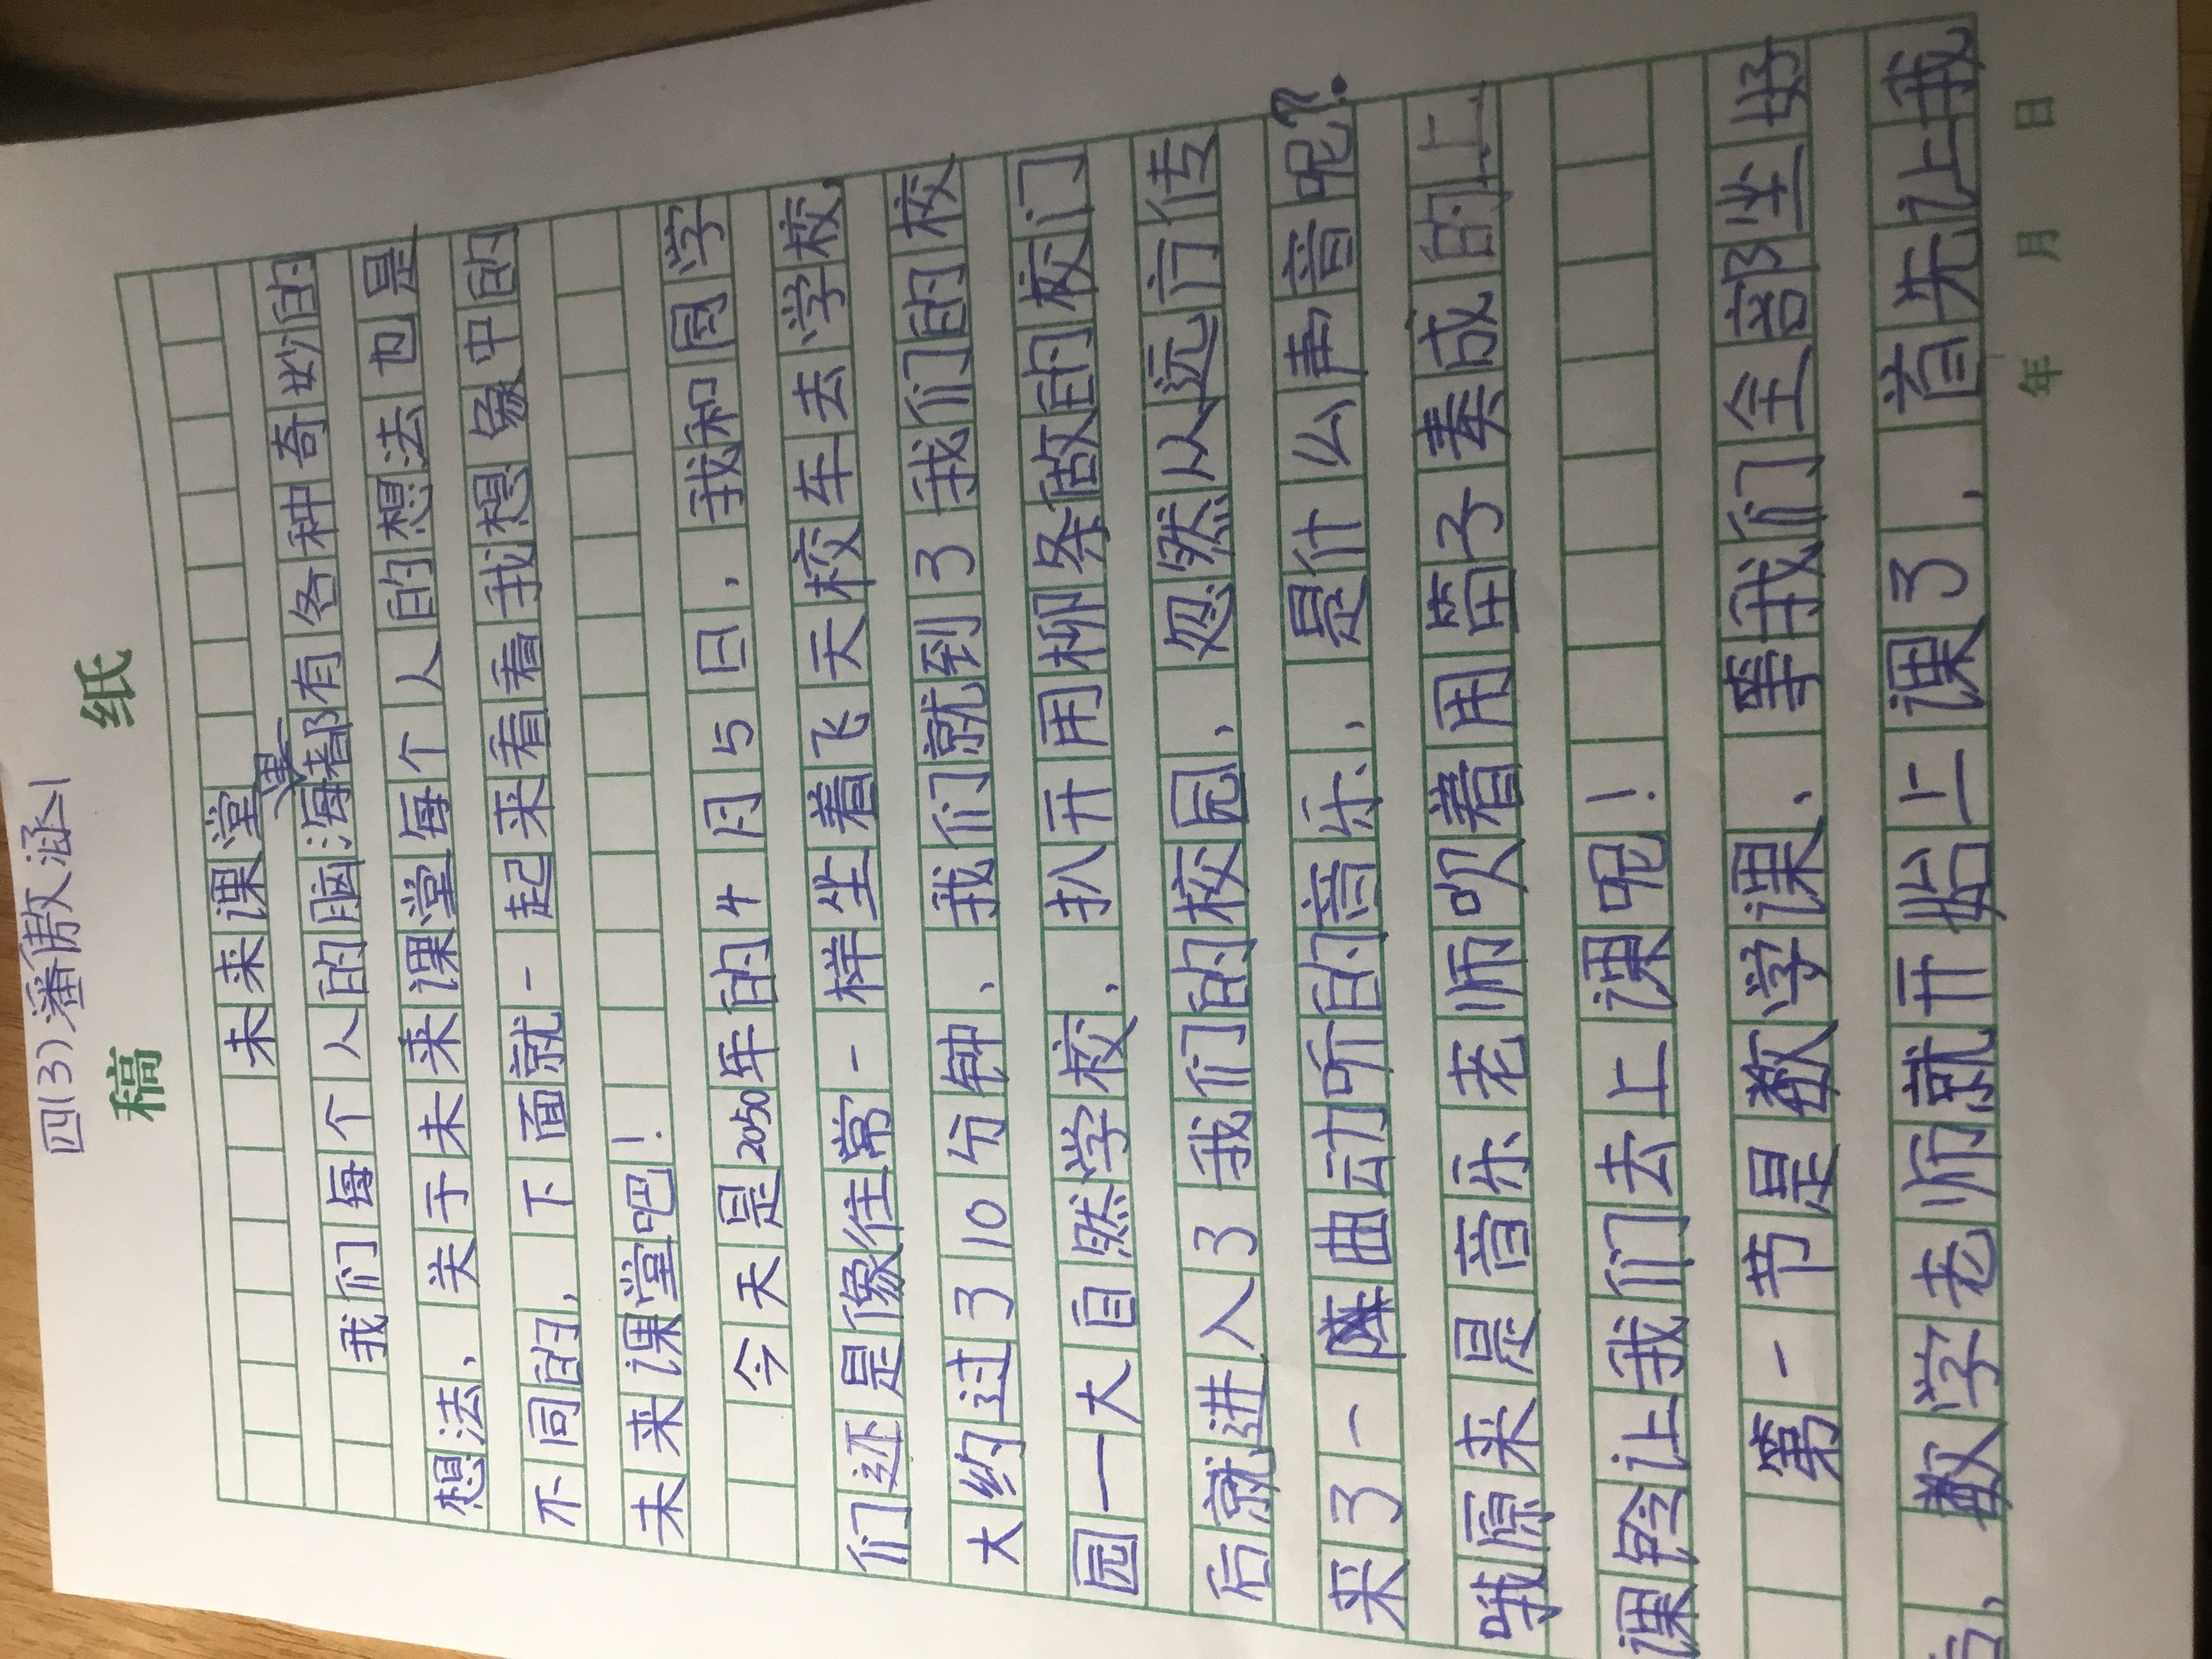 四(3)潘傲涵1
稿 纸
未来课堂
我们每个人的脑海里都有各种奇妙的
想法，关于未来课堂每个人的想法也是
不同的，下面就一起来看看我想象中的
未来课堂吧！
今天是2050年的4月5日，我和同学
们还是像往常一样坐着飞天校车去学校，
大约过了10分钟，我们就到了我们的校
园一大自然学校，扒开用柳条做的校门
后就进入了我们的校园，忽然从远方传
来了一曲动听的音乐，是什么声音呢？
哦原来是音乐老师吹着用笛子奏成的上
课铃让我们去上课呢！
第一节是数学课，等我们全部坐好
后，数学老师就开始上课了，首先让我
年 月 日